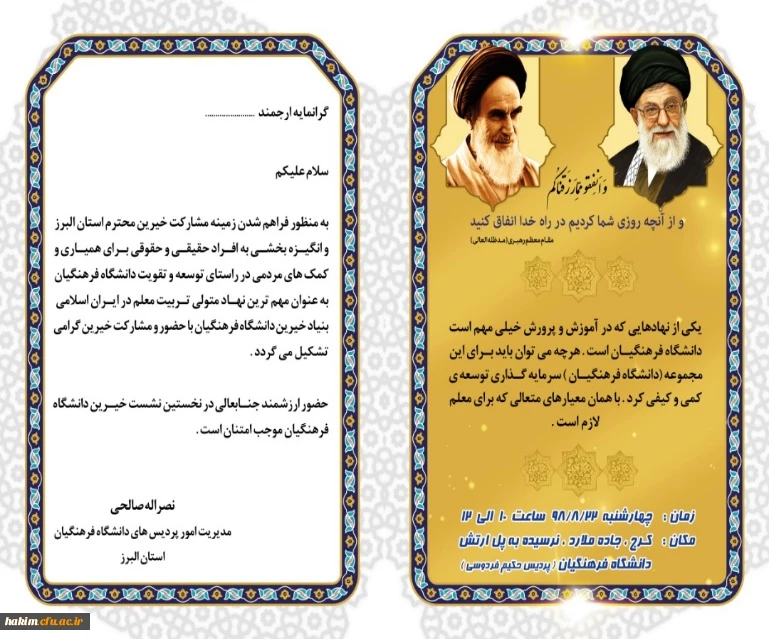 وَ اَنْفِقُو مِمّا رَزَقْناکُم
و از آنچه روزی شما کردیم در راه خدا انفاق کنید
مقام معظم رهبری (مدظله العالی)
یکی از نهادهایی که در آموزش و پرورش خیلی مهم است
دانشگاه فرهنگیان است . هرچه می توان باید برای این
مجموعه (دانشگاه فرهنگیان ) سرمایه گذاری توسعه ی
کمی و کیفی کرد . با همان معیارهای متعالی که برای معلم
لازم است .
زمان : چهارشنبه ۹۸/۸/۲۲ ساعت ۱۰ الی ۱۲
مکان : کرج ، جاده ملارد ، نرسیده به پل ارتش
دانشگاه فرهنگیان ( پردیس حکیم فردوسی )
گرانمایه ارجمند ........................
سلام علیکم
به منظور فراهم شدن زمینه مشارکت خیرین محترم استان البرز
و انگیزه بخشی به افراد حقیقی و حقوقی برای همیاری و
کمک های مردمی در راستای توسعه و تقویت دانشگاه فرهنگیان
به عنوان مهم ترین نهاد متولی تربیت معلم در ایران اسلامی
بنیاد خیرین دانشگاه فرهنگیان با حضور و مشارکت خیرین گرامی
تشکیل می گردد .
حضور ارزشمند جنابعالی در نخستین نشست خیرین دانشگاه
فرهنگیان موجب امتنان است .
نصراله صالحی
مدیریت امور پردیس های دانشگاه فرهنگیان
استان البرز
hakim.cfu.ac.ir